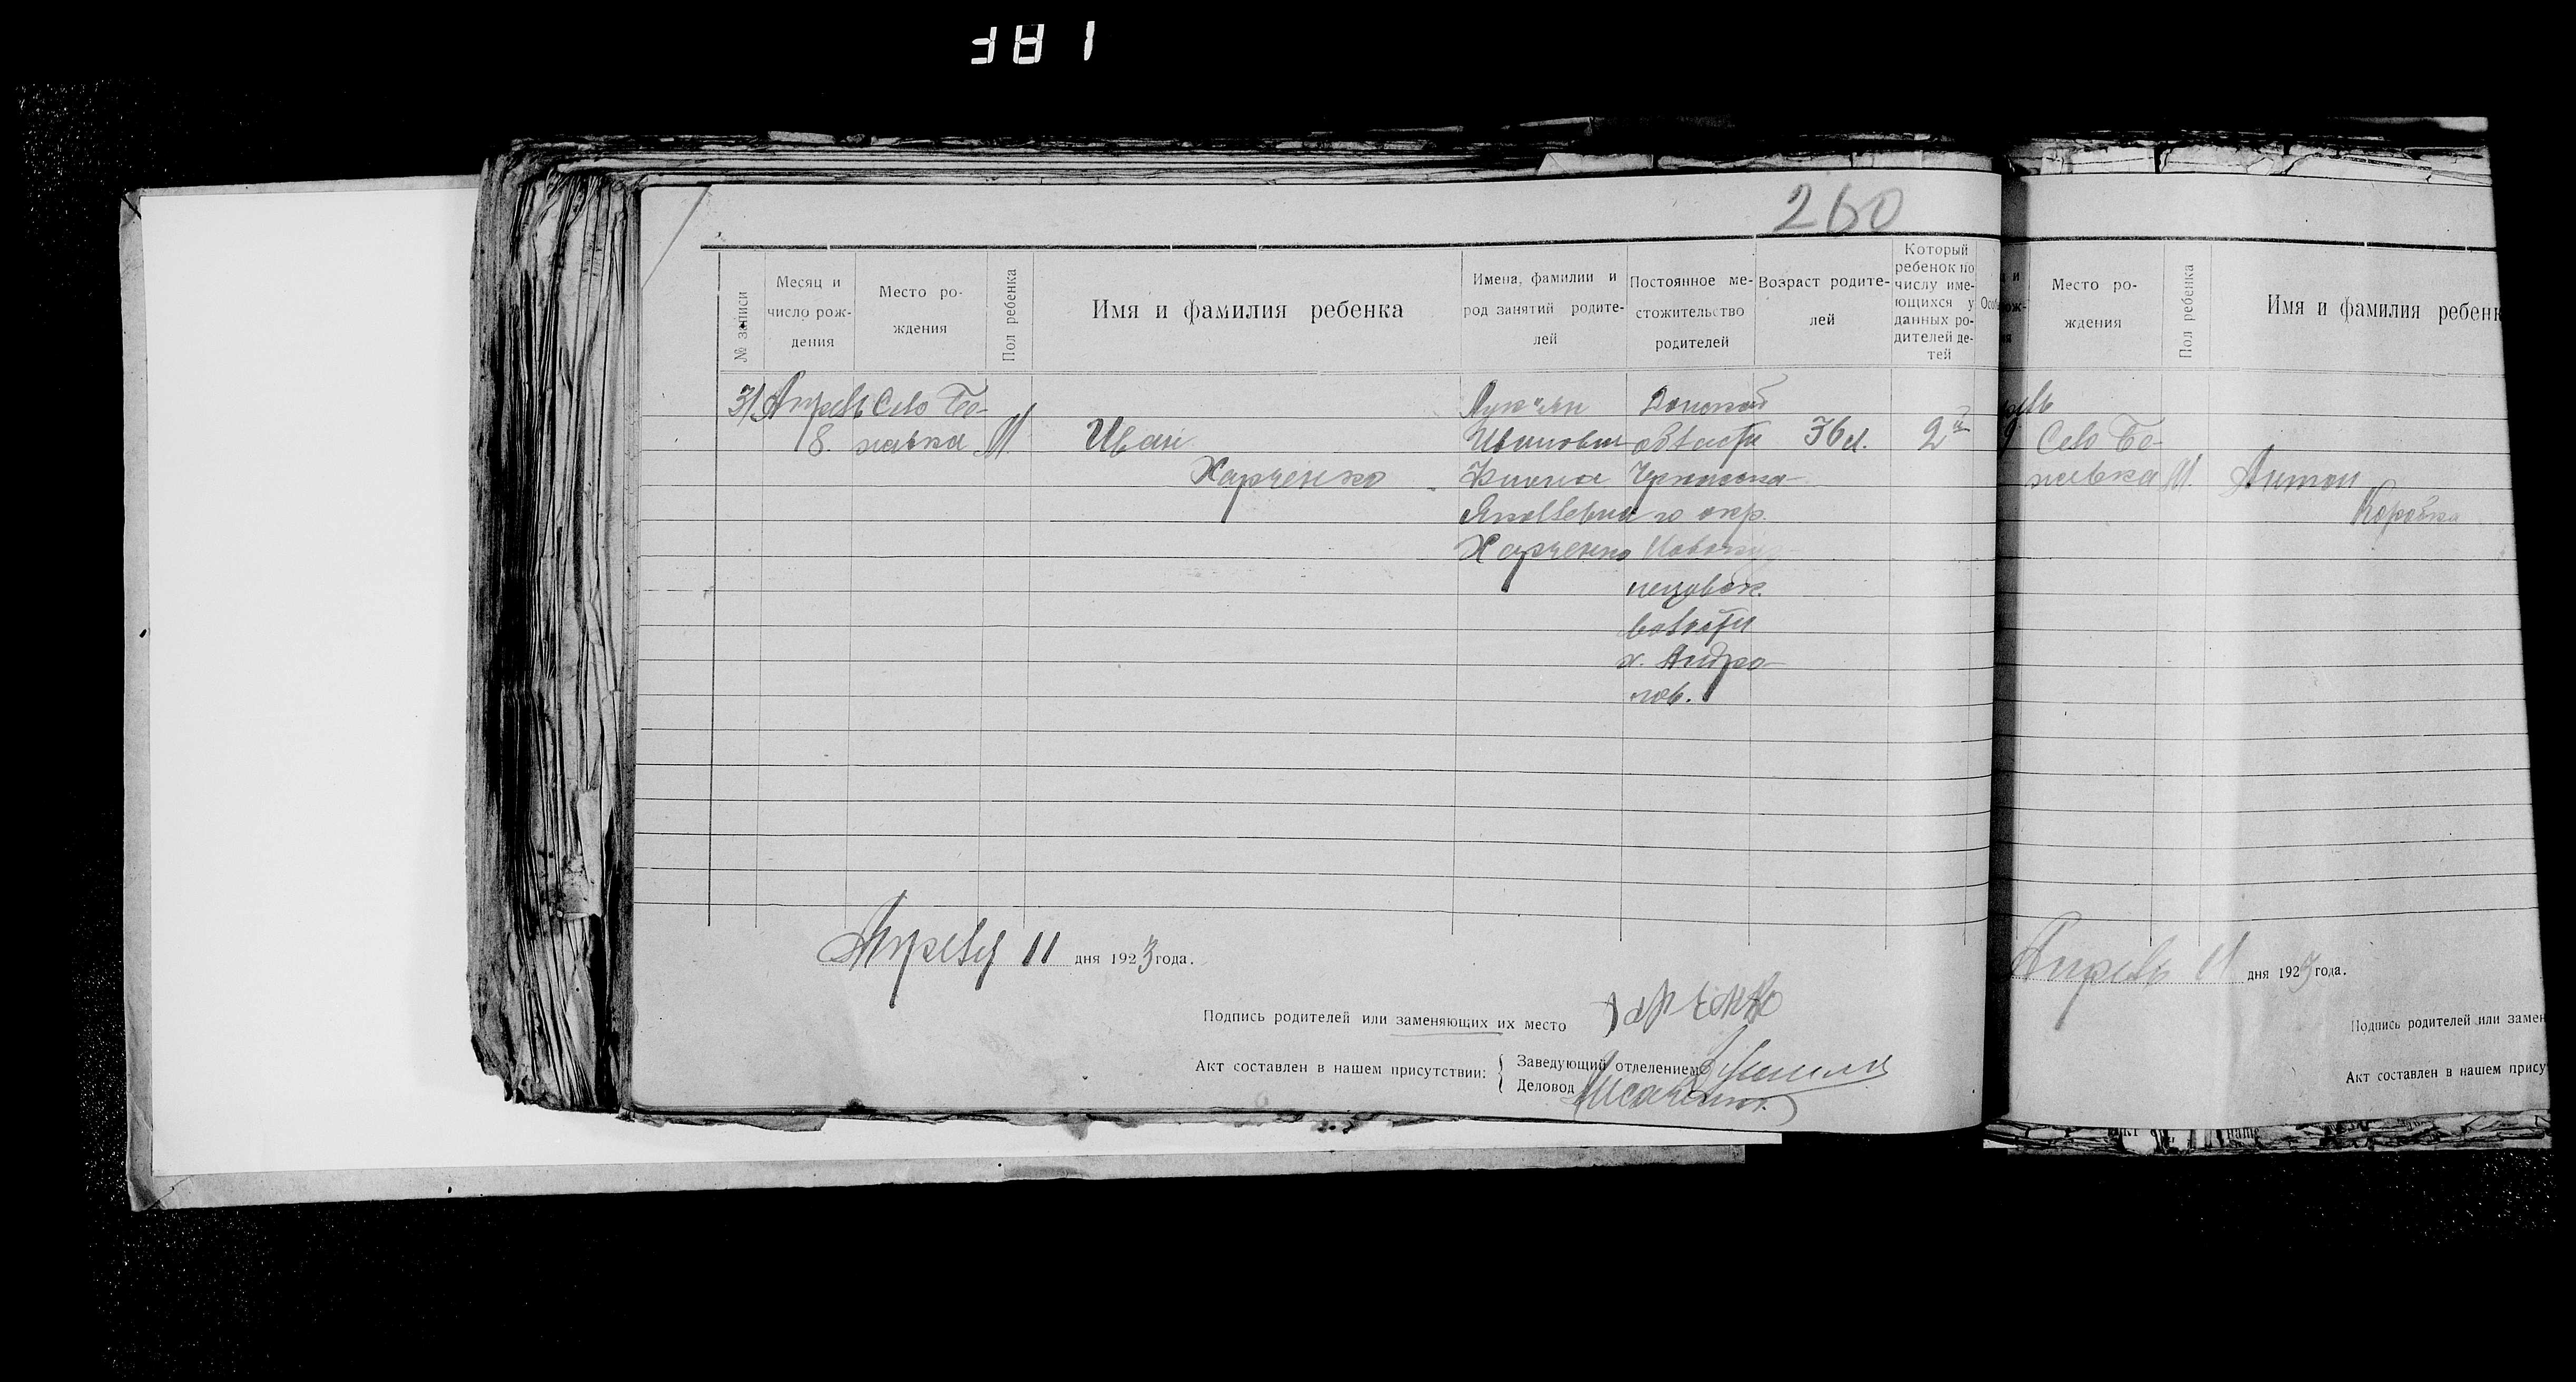 260
№ записи
Месяц и число рождения
Место рождения
Пол ребенка
Имя и фамилия ребенка
Имена, фамилии и род занятий родителей
Постоянное местожительство родителей
Возраст родителей
Который ребенок по числу имеющихся у данных родителей детей
31 Апрель Село Бе-
8. М. Иван
Харченко
Лукьян
Иванович
Яковлевна
Харченко
Донской
области
Черкасска-
го окр.
волости
х. Андро-
нов.
36 л.
2й
Апреля 11 дня 1923 года.
Подпись родителей или заменяющих их место Харченко
Акт составлен в нашем присутствии:
Заведующий отделением
Деловод
Место рождения
Пол ребенка
Имя и фамилия ребенк
Село Бе-
М. Антон
Коробка
Апрель 11 дня 1923 года.
Подпись родителей или замен
Акт составлен в нашем прису